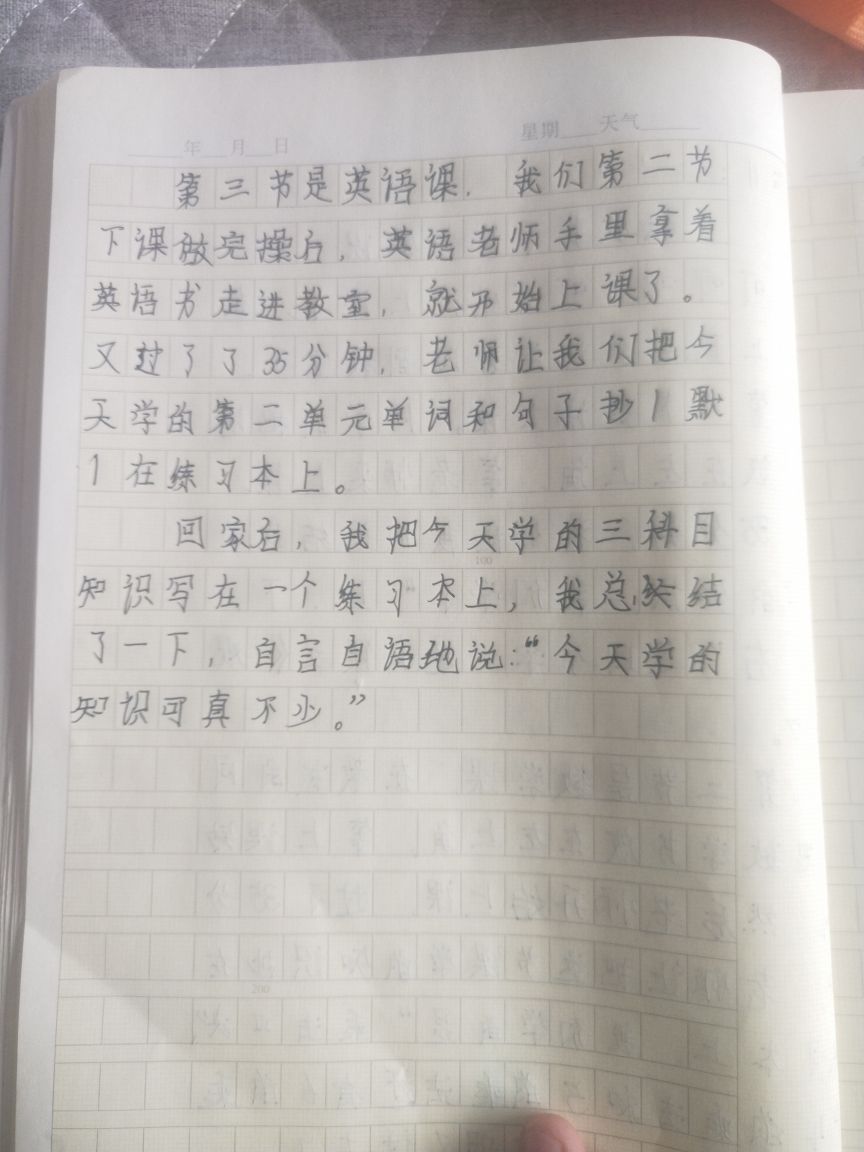 年 月 日 星期 天气
第三节是英语课. 我们第二节
下课做完操后, 英语老师手里拿着
英语书走进教室, 就开始上课了。
又过了了35分钟, 老师让我们把今
天学的第二单元单词和句子抄1默
1在练习本上。
回家后, 我把今天学的三科目
100
知识写在一个练习本上, 我总结
了一下, 自言自语地说:“今天学的
知识可真不少。”
200